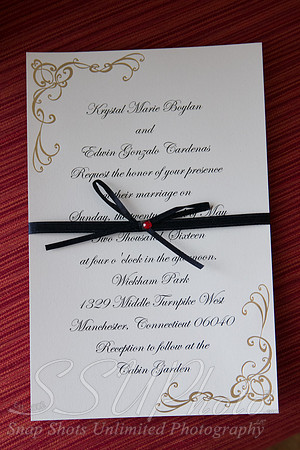 Krystal Marie Boylan
and
Edwin Gonzalo Cardenas
Request the honor of your presence
their marriage on
Sunday, the twenty May
Two Thousand Sixteen
at four o'clock in the afternoon.
Wickham Park
1329 Middle Turnpike West
Manchester, Connecticut 06040
Reception to follow at the
Cabin Garden
Snap Shots Unlimited Photography